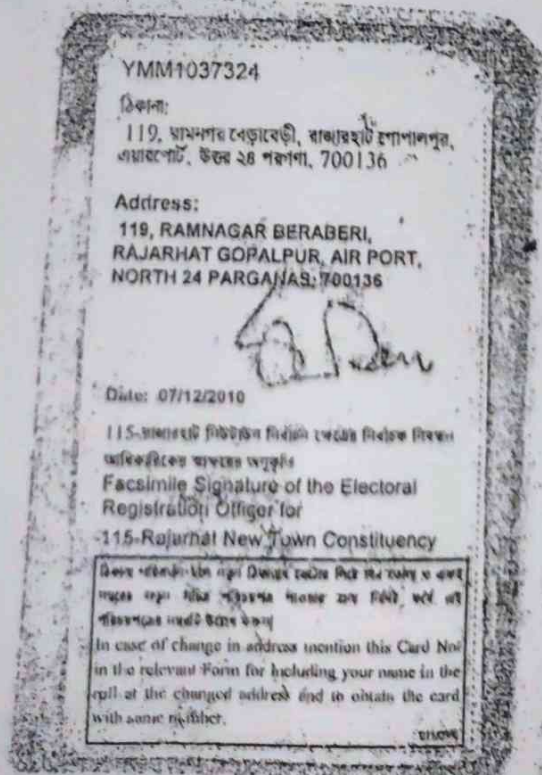 YMM1037324
ঠিকানা:
119, রামনগর বেড়াবেড়ী, রাজারহাট গোপালপুর,
এয়ারপোর্ট, উত্তর ২৪ পরগণা, 700136
Address:
119, RAMNAGAR BERABERI,
RAJARHAT GOPALPUR, AIR PORT,
NORTH 24 PARGANAS, 700136
Date: 07/12/2010
115-রাজারহাট নিউটাউন নির্বাচন ক্ষেত্রের নির্বাচক নিবন্ধন
আধিকারিকের স্বাক্ষরের অনুকৃতি
Facsimile Signature of the Electoral
Registration Officer for
115-Rajarhat New Town Constituency
In case of change in address mention this Card No.
in the relevant Form for including your name in the
roll at the changed address and to obtain the card
with same number.